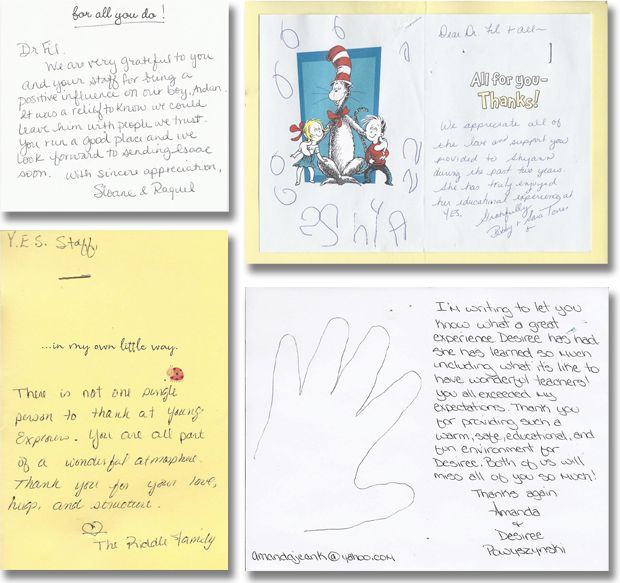 for all you do!
Dr Fil.
We are very grateful to you
and your staff for being a
positive influence on our boy, Aidan.
It was a relief to know we could
leave him with people we trust.
You run a good place and we
look forward to sending Isaac
soon. With sincere appreciation,
Sloane & Raquel
Dear Dr. Fil + all~
All for you-
Thanks!
We appreciate all of
the love and support you
provided to Shyann
during the past two years.
She has truly enjoyed
her educational experience at
YES. Gratefully,
Bobby + Sara Torres
Y.E.S. Staff,
...in my own little way.
There is not one single
person to thank at Young
Explorers. You are all part
of a wonderful atmosphere.
Thank you for your love,
hugs, and structure.
The Riddle Family
I'm writing to let you
know what a great
experience Desiree has had
she has learned so much
including what its like to
have wonderful teachers!
you all exceeded my
expectations. Thank you
for providing such a
warm, safe, educational, and
fun environment for
Desiree. Both of us will
miss all of you so much!
Thanks again
Amanda
&
Desiree
Powyszynski
amandajeank@yahoo.com